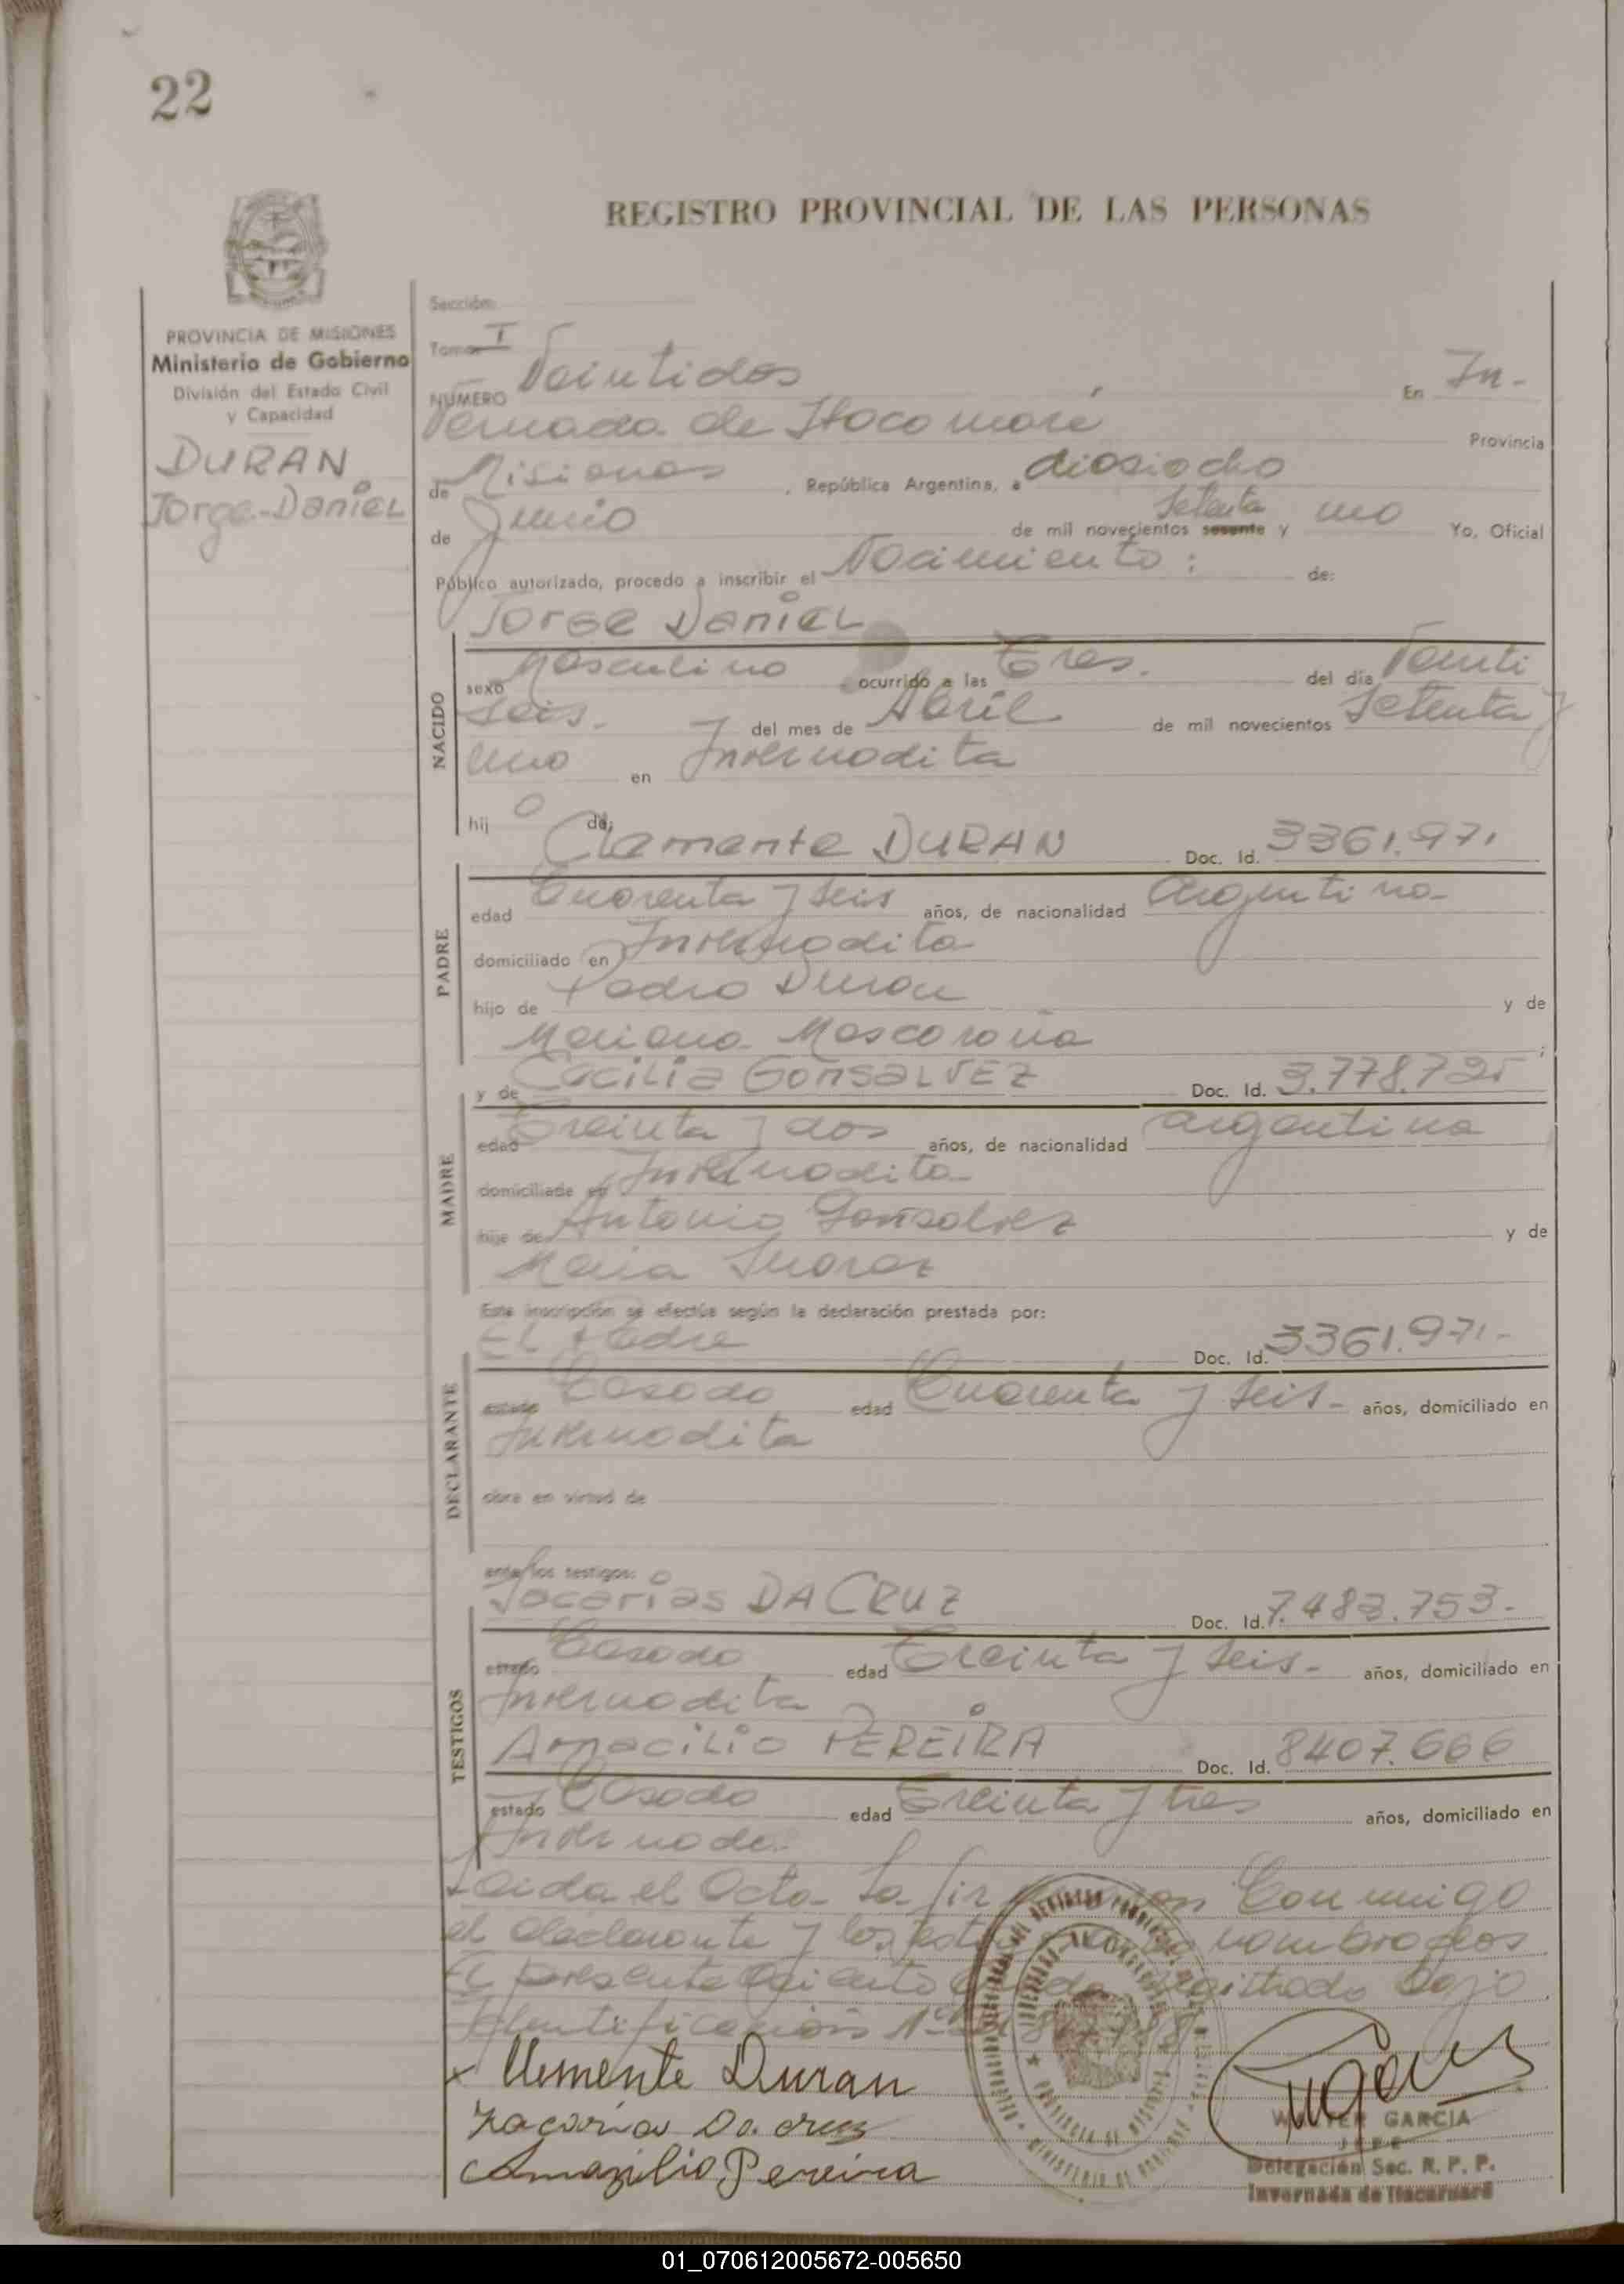 22
REGISTRO PROVINCIAL DE LAS PERSONAS
PROVINCIA DE MISIONES
Ministerio de Gobierno
División del Estado Civil
y Capacidad
DURAN
Jorge-Daniel
Sección:
Tomo I
NÚMERO Veintidos En In-
vernada de Itacaruaré Provincia
de Misiones, República Argentina, a diosiocho
de Junio de mil novecientos sesenta y setenta uno Yo, Oficial
Público autorizado, procedo a inscribir el Nacimiento: de:
Jorge Daniel
NACIDO
sexo Masculino ocurrido a las Tres. del día Veinti
seis. del mes de Abril de mil novecientos Setenta y
uno en Invernadita
hijo de: Clemente DURAN Doc. Id. 3361.971
PADRE
edad Cuarenta y seis años, de nacionalidad argentino-
domiciliado en Invernadita
hijo de Pedro Duran y de
Mariana Mascoroña;
y de Cecilia GOÑSALVEZ Doc. Id. 3.778.725
MADRE
edad Treinta y dos años, de nacionalidad argentina
domiciliada en Invernadita
hija de Antonio Goñsalvez y de
Maria Suarez
Esta inscripción se efectúa según la declaración prestada por:
El Padre Doc. Id. 3361.971-
DECLARANTE
estado Casado edad Cuarenta y seis- años, domiciliado en
Invernadita
obra en virtud de
ante los testigos:
Sacarias DA CRUZ Doc. Id. 7.483.753-
TESTIGOS
estado Casado edad Treinta y seis- años, domiciliado en
Invernadita
Amacilio PEREIRA Doc. Id. 8407.666
estado Casado edad Treinta y tres años, domiciliado en
Invernada
Leida el Acta La firman Conmigo
el declarante y los testigos nombrados
El presente bajo
Identificación
x Clemente Duran
Zacarias Da. cruz
Amazilio Pereira
WALTER GARCIA
JEFE
Delegación Sec. R. P. P.
Invernada de Itacaruaré
01_070612005672-005650